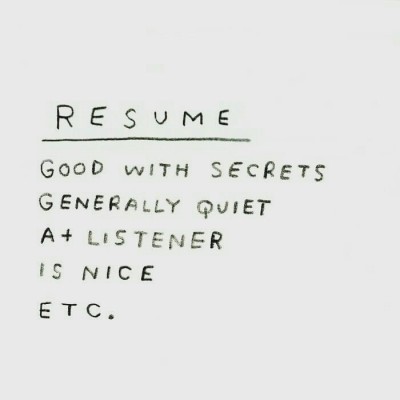 RESUME
GOOD WITH SECRETS
GENERALLY QUIET
A+ LISTENER
IS NICE
ETC.